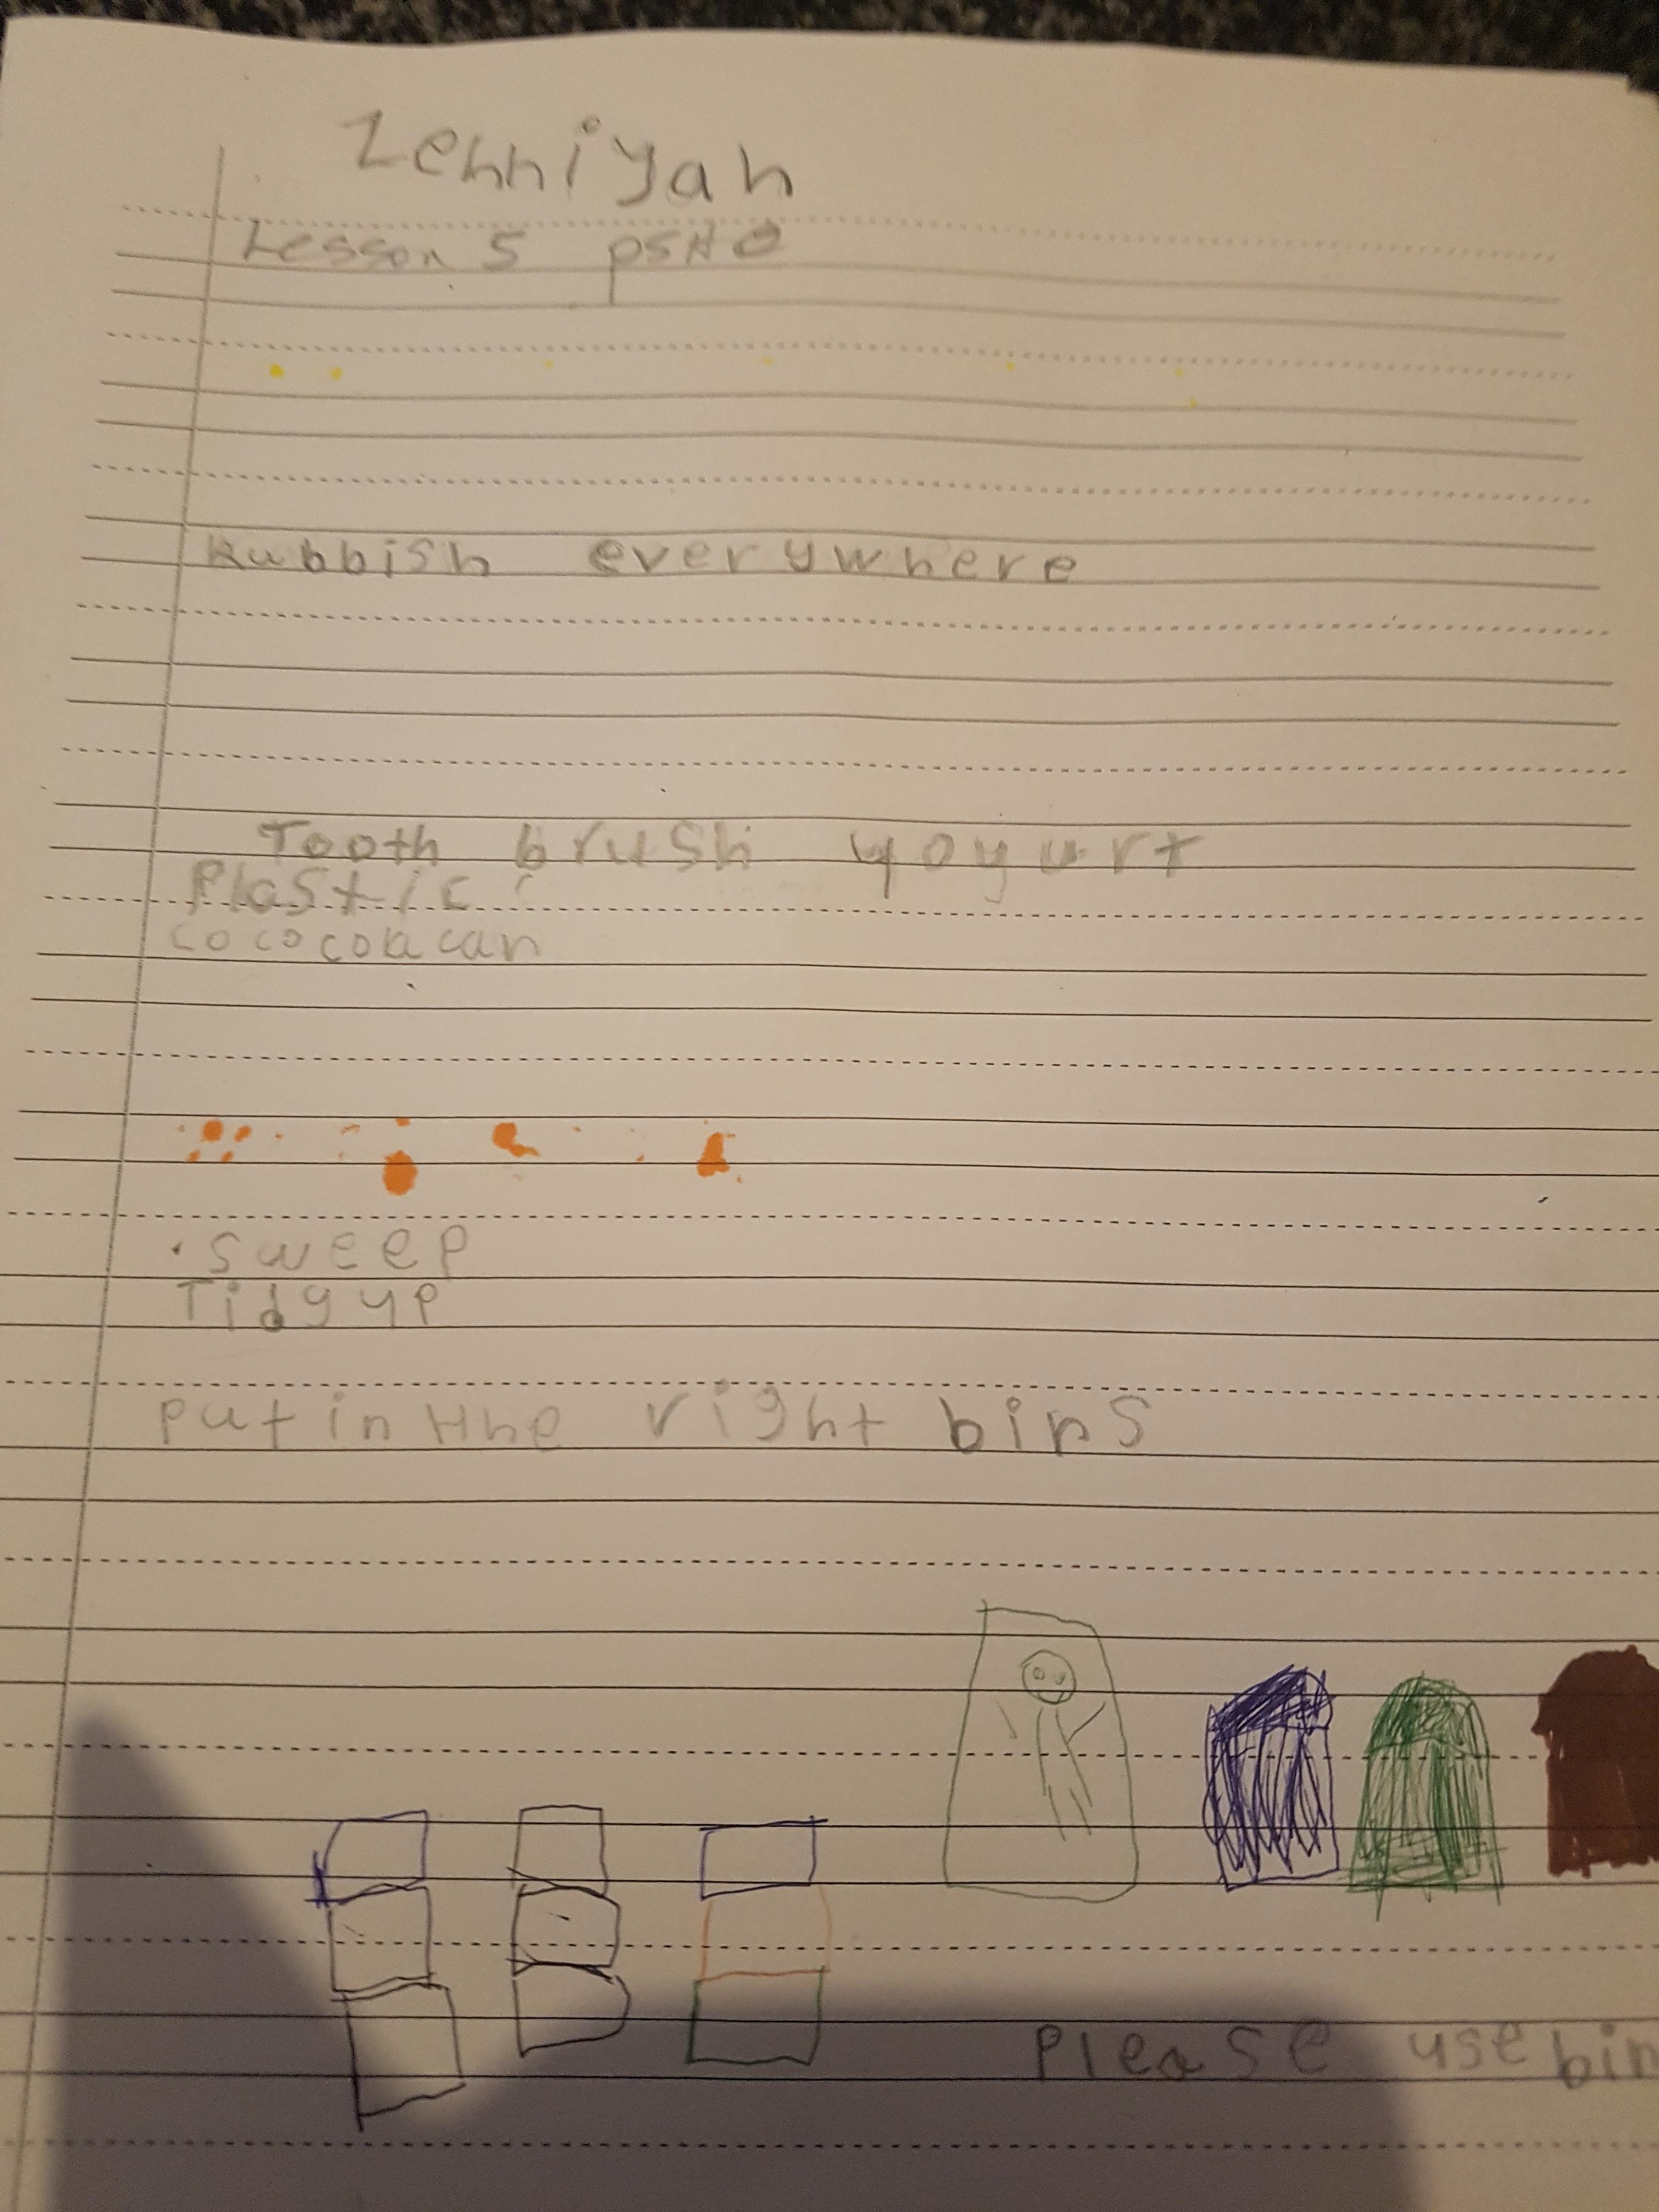 Zenniyah
Lesson 5 PSHe
Rubbish everywhere
Tooth brush yoyurt
Plastic
cococola can
. sweep
Tidy up
put in the right bins
Please use bin